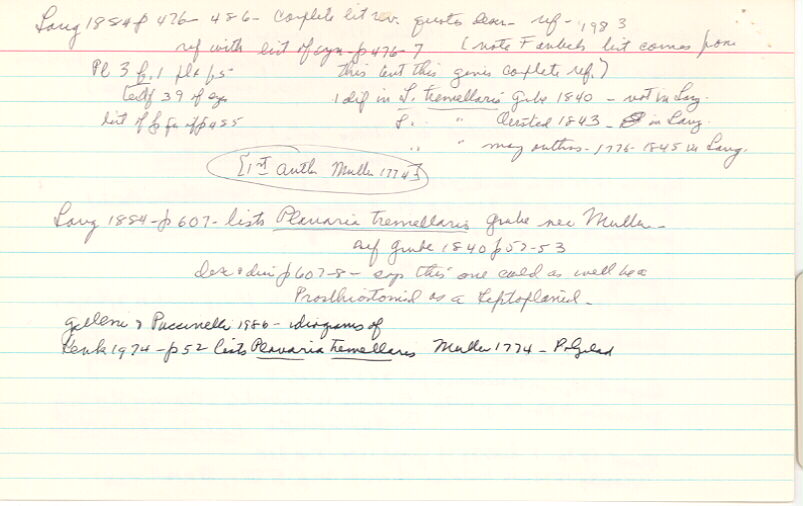 Lang 1884-p 476-486- Complete lit rev. quotes desc- ref- 1983
ref with list of syn-p476-7 (note Faubels list comes from
Pl 3 f.1 pl f5 this but this gives complete ref.)
textf 39 of eye 1 dif in L. tremellaris Grube 1840 - not in Lang.
list of figs of p485 L. " Oersted 1843 - in Lang.
" " many authors-1776-1845 in Lang.
[1st auth Muller 1774]
Lang 1884-p607-lists Planaria Tremellaris Grube nec Muller-
ref Grube 1840 p52-53
desc & disc p607-8- says this one could as well be a
Prosthiostomid as a Leptoplanid.
Galleni & Puccinelli 1986- idiograms of
Kenk 1974-p52 lists Planaria Tremellares Muller 1774- Polyclad